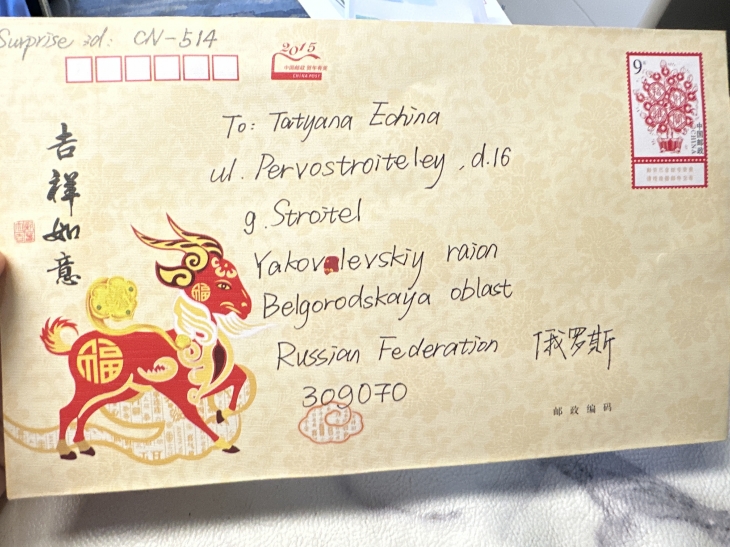 Surprise id: CN-514
2015
中国邮政 贺年有奖
CHINA POST
9元
中国邮政
CHINA
吉祥如意
福
福
To: Tatyana Echina
ul. Pervostroiteley, d.16
g. Stroitel
Yakovlevskiy raion
Belgorodskaya oblast
Russian Federation 俄罗斯
309070
邮政编码